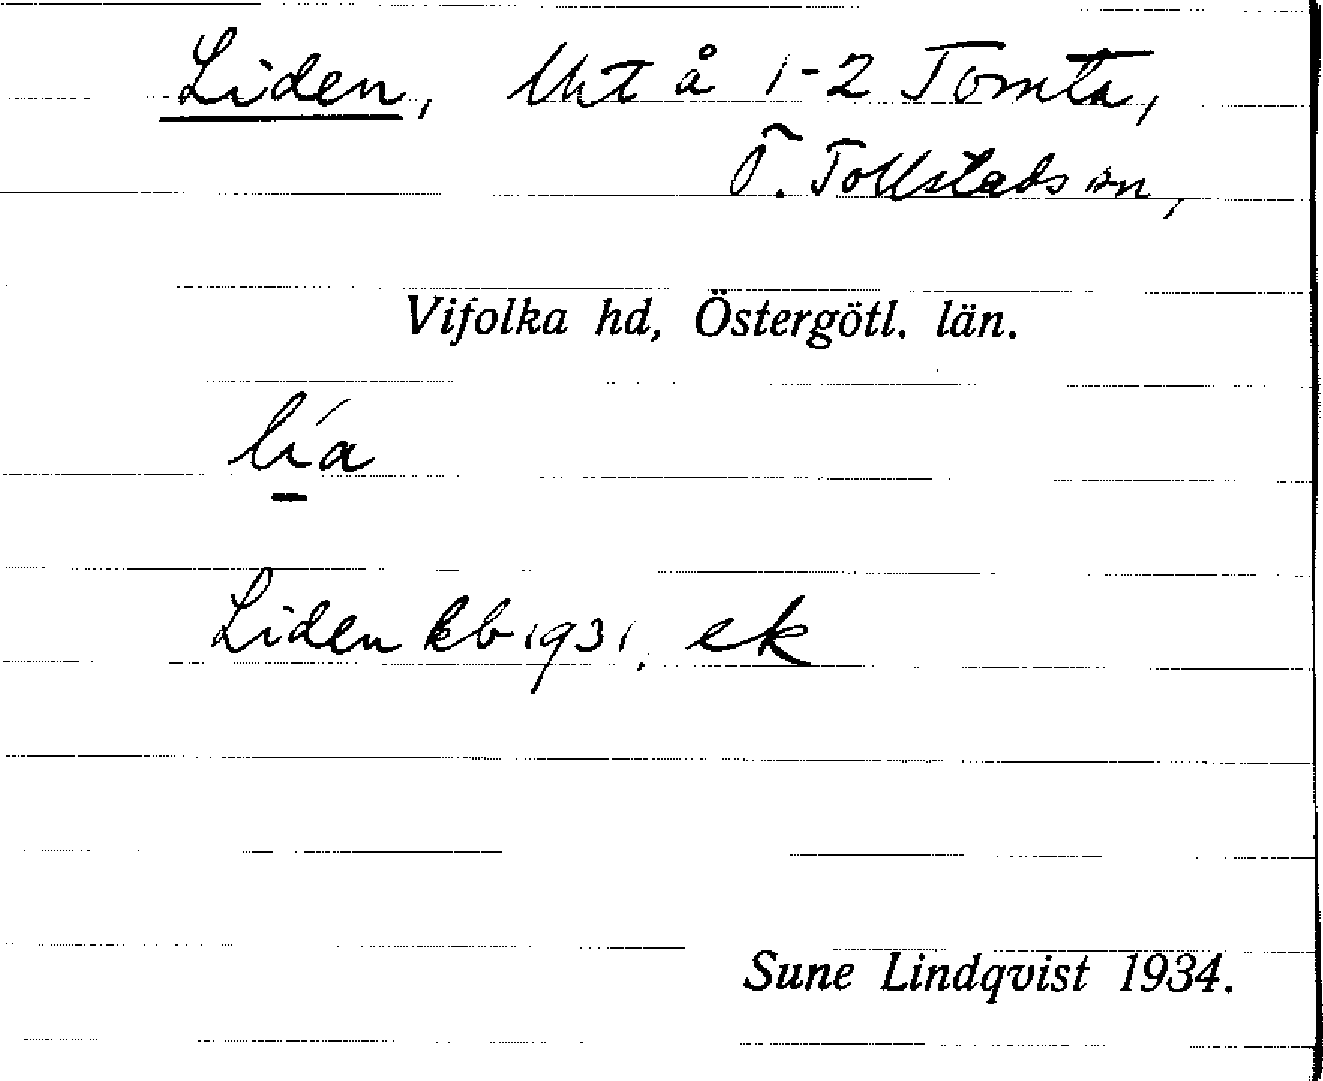 Liden, Uht å 1-2 Tomta,
Ö. Tollstads sn,
Vifolka hd, Östergötl. län.
lía
Liden kb 1931, ek
Sune Lindqvist 1934.